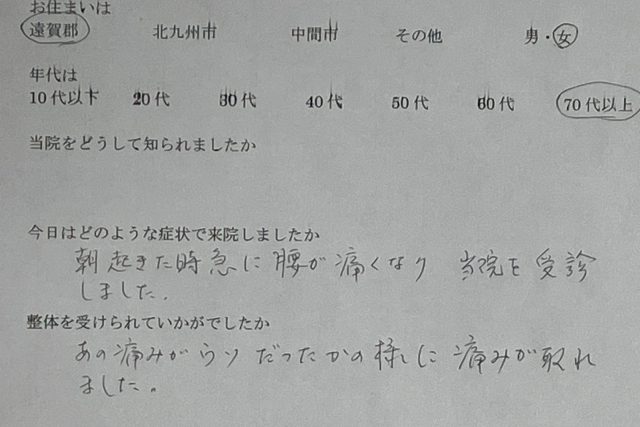 お住まいは
遠賀郡 北九州市 中間市 その他 男・女
年代は
10代以下 20代 30代 40代 50代 60代 70代以上
当院をどうして知られましたか
今日はどのような症状で来院しましたか
朝起きた時急に腰が痛くなり 当院を受診
しました。
整体を受けられていかがでしたか
あの痛みがウソだったかの様に痛みが取れ
ました。